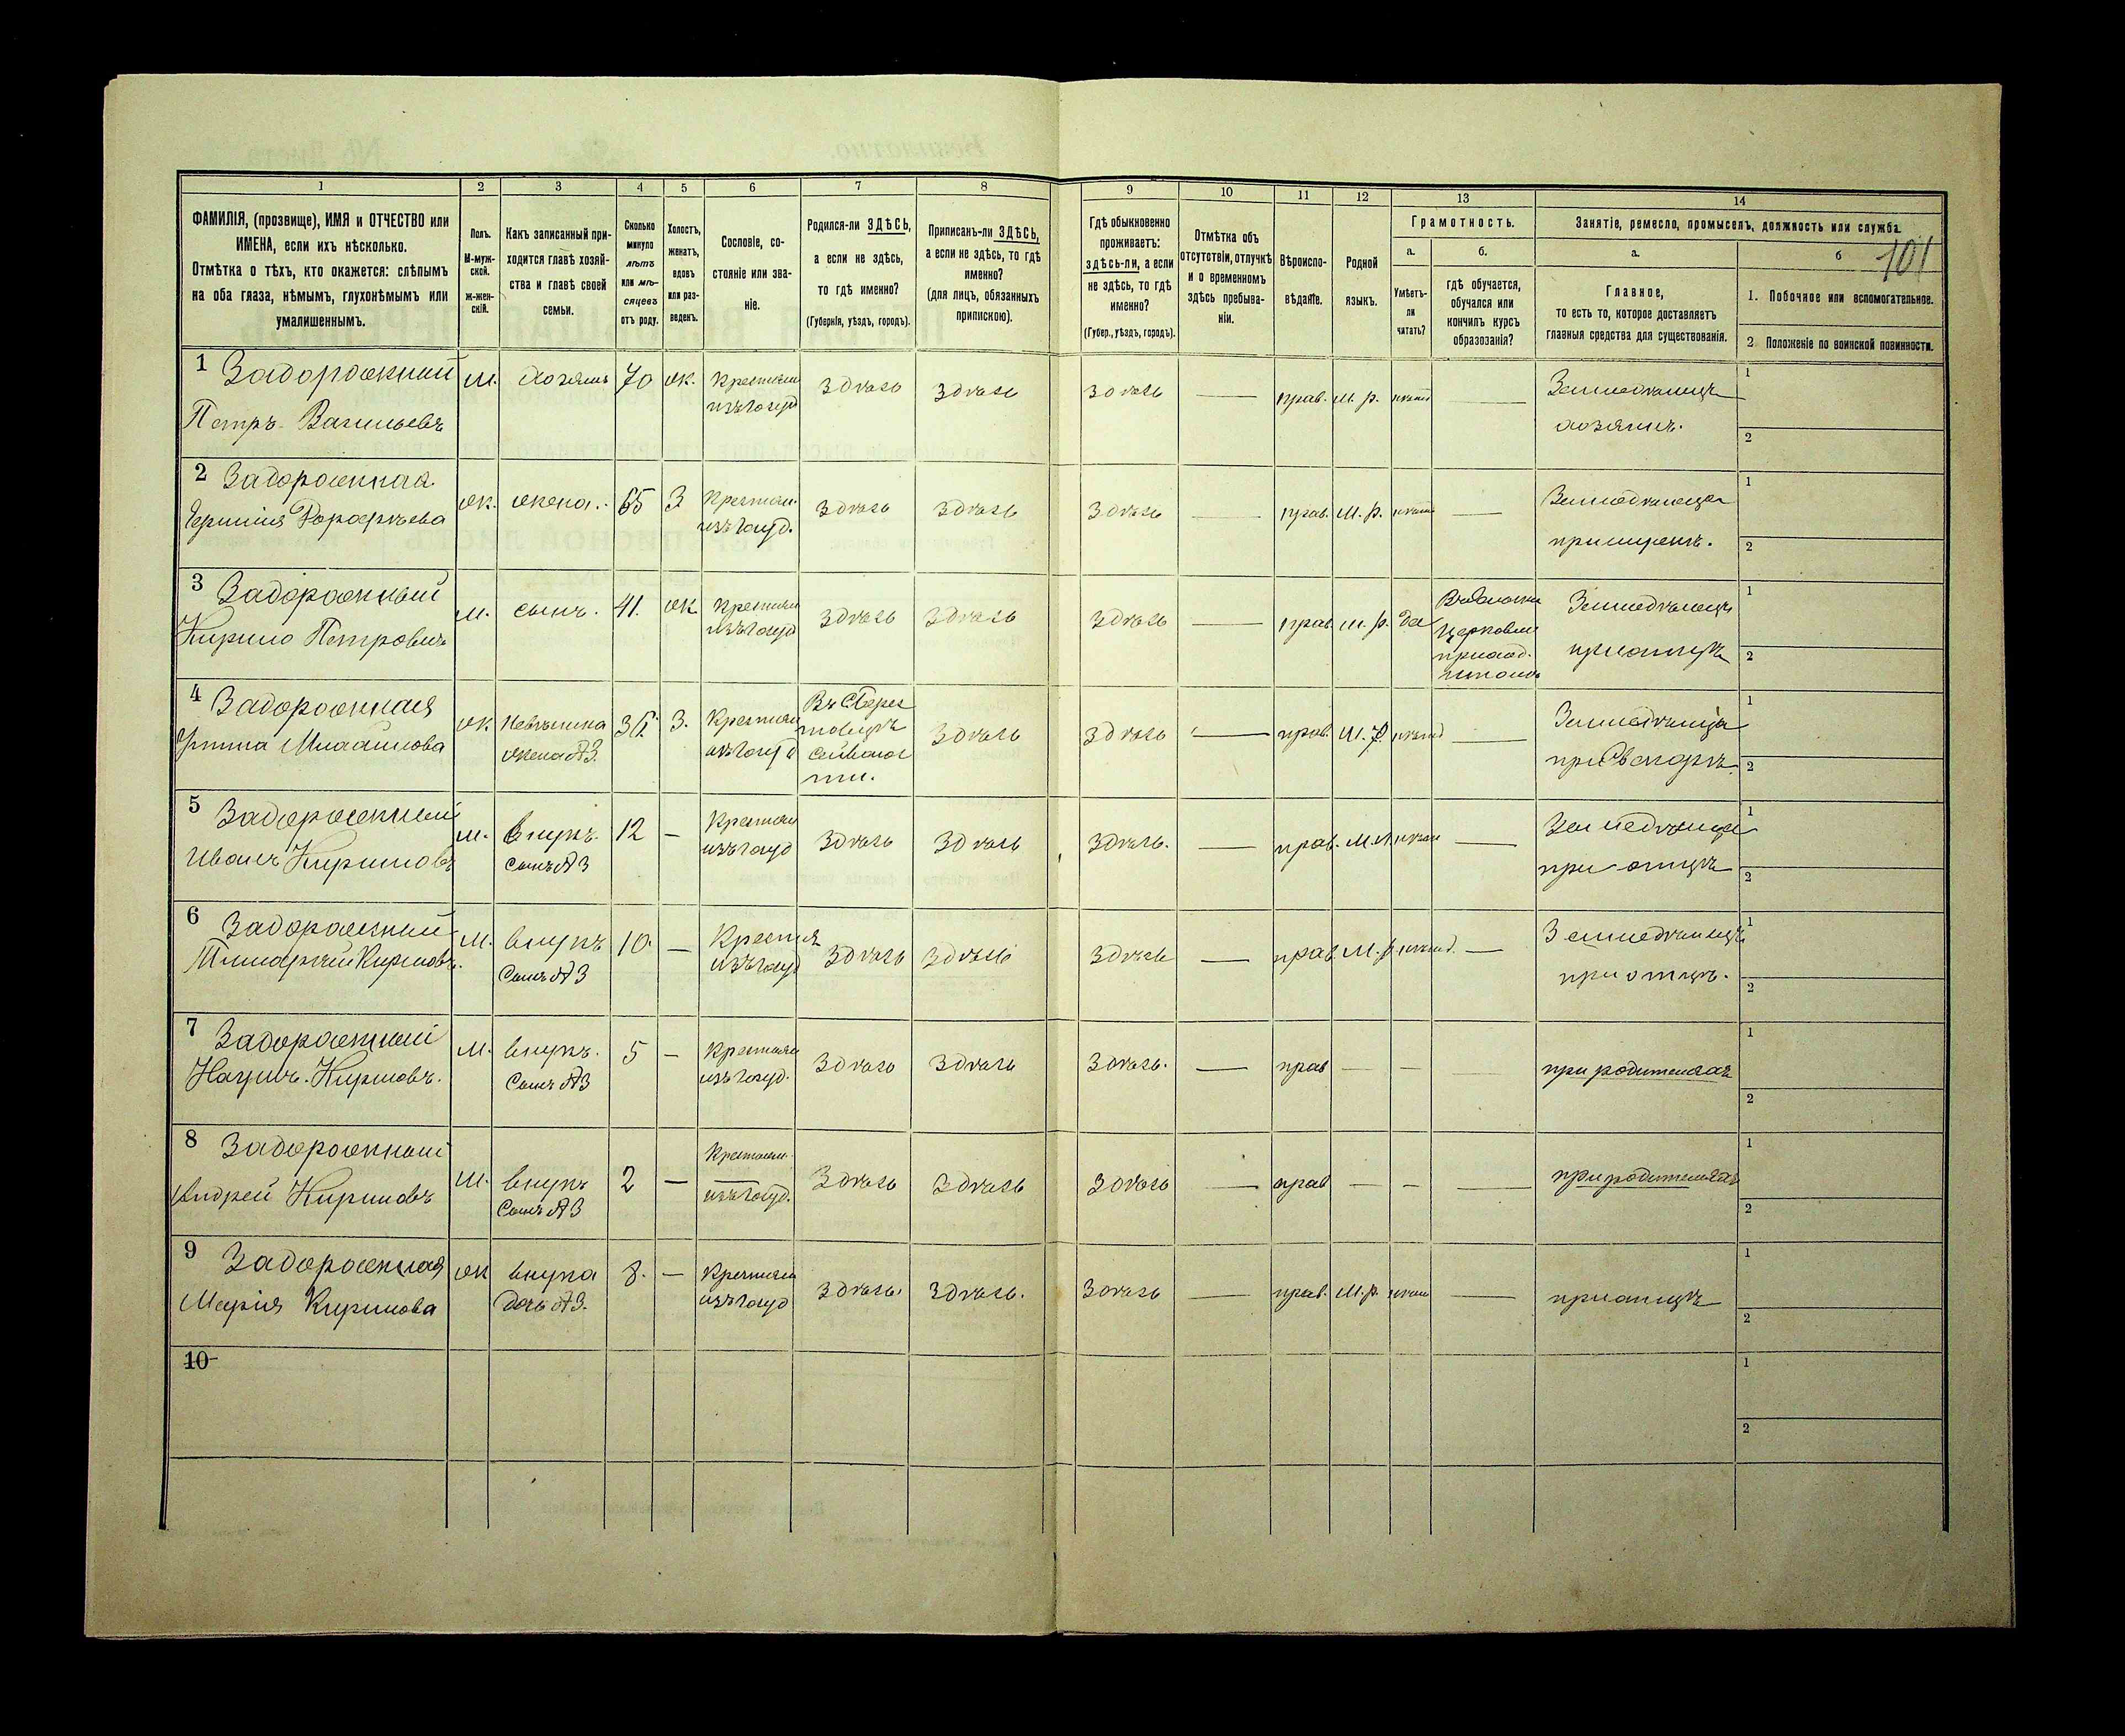 1 2 3 4 5 6 7 8 9 10 11 12 13 14
ФАМИЛІЯ, (прозвище), ИМЯ и ОТЧЕСТВО или
ИМЕНА, если ихъ нѣсколько.
Отмѣтка о тѣхъ, кто окажется: слѣпымъ
на оба глаза, нѣмымъ, глухонѣмымъ или
умалишеннымъ.
Полъ.
М-муж-
ской.
Ж-жен-
скій.
Какъ записанный при-
ходится главѣ хозяй-
ства и главѣ своей
семьи.
Сколько
минуло
лѣтъ
или мѣ-
сяцевъ
отъ роду.
Холостъ,
женатъ,
вдовъ
или раз-
веденъ.
Сословіе, со-
стояніе или зва-
ніе.
Родился-ли ЗДѢСЬ,
а если не здѣсь,
то гдѣ именно?
(Губернія, уѣздъ, городъ).
Приписанъ-ли ЗДѢСЬ,
а если не здѣсь, то гдѣ
именно?
(для лицъ, обязанныхъ
припискою).
Гдѣ обыкновенно
проживаетъ:
здѣсь-ли, а если
не здѣсь, то гдѣ
именно?
(Губер., уѣздъ, городъ).
Отмѣтка объ
отсутствіи, отлучкѣ
и о временномъ
здѣсь пребыва-
ніи.
Вѣроиспо-
вѣданіе.
Родной
языкъ.
Грамотность.
а.
Умѣетъ-
ли
читать?
б.
гдѣ обучается,
обучался или
кончилъ курсъ
образованія?
Занятіе, ремесло, промыселъ, должность или служба.
а.
Главное,
то есть то, которое доставляетъ
главныя средства для существованія.
б
101
1. Побочное или вспомогательное.
2 Положеніе по воинской повинности.
1 Задорожний м. хозяинъ 70 ж. Крестьян здѣсь здѣсь здѣсь — прав. м. р. — Земледѣлецъ 1
Петръ Васильевъ изъ госуд хозяинъ. 2
2 Задорожная ж. жена. 65 З Крестьян. здѣсь здѣсь здѣсь — прав. м. р. — 1
изъ госуд. 2
3 Задорожний м. сынъ. 41. ж Крестьян здѣсь здѣсь здѣсь — прав. м. р. да Земледѣлецъ 1
Кирило Петровичъ изъ госуд Церковно приход. при отцѣ 2
4 Задорожная ж невѣстка 3. Крестьян здѣсь здѣсь — прав. м. р. — 1
Михайлова жена №3. изъ госуд волос ти. при свекорѣ 2
5 Задорожний м. внукъ 12 — Крестьян здѣсь здѣсь здѣсь. — прав. — 1
Иванъ Кириловъ сынъ №3 изъ госуд при отцѣ 2
6 Задорожний м. внукъ 10. — здѣсь здѣсь здѣсь — прав м. р. — Земледѣлецъ 1
Кириловъ. сынъ №3 изъ госуд при отцѣ. 2
7 Задорожний м. внукъ. 5 — Крестьян здѣсь здѣсь здѣсь. — прав — — — при родителяхъ 1
Кириловъ. сынъ №3 изъ госуд. 2
8 Задорожний м. внукъ 2 — Крестьян. здѣсь здѣсь здѣсь — прав — — — при родителяхъ 1
Андрей Кириловъ сынъ №3 изъ госуд. 2
9 Задорожная ж внука 8. — Крестьян здѣсь. здѣсь. здѣсь — прав. м. р. — при отцѣ 1
Марія Кирилова дочь №3. изъ госуд 2
10 1
2